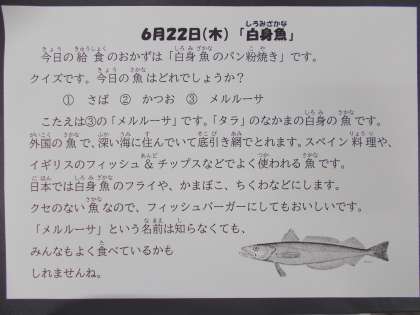 6月22日(木)「白身魚」
今日の給食のおかずは「白身魚のパン粉焼き」です。
クイズです。今日の魚はどれでしょうか?
① さば ② かつお ③ メルルーサ
こたえは③の「メルルーサ」です。「タラ」のなかまの白身の魚です。
外国の魚で、深い海に住んでいて底引き網でとれます。スペイン料理や、
イギリスのフィッシュ&チップスなどでよく使われる魚です。
日本では白身魚のフライや、かまぼこ、ちくわなどにします。
クセのない魚なので、フィッシュバーガーにしてもおいしいです。
「メルルーサ」という名前は知らなくても、
みんなもよく食べているかも
しれませんね。